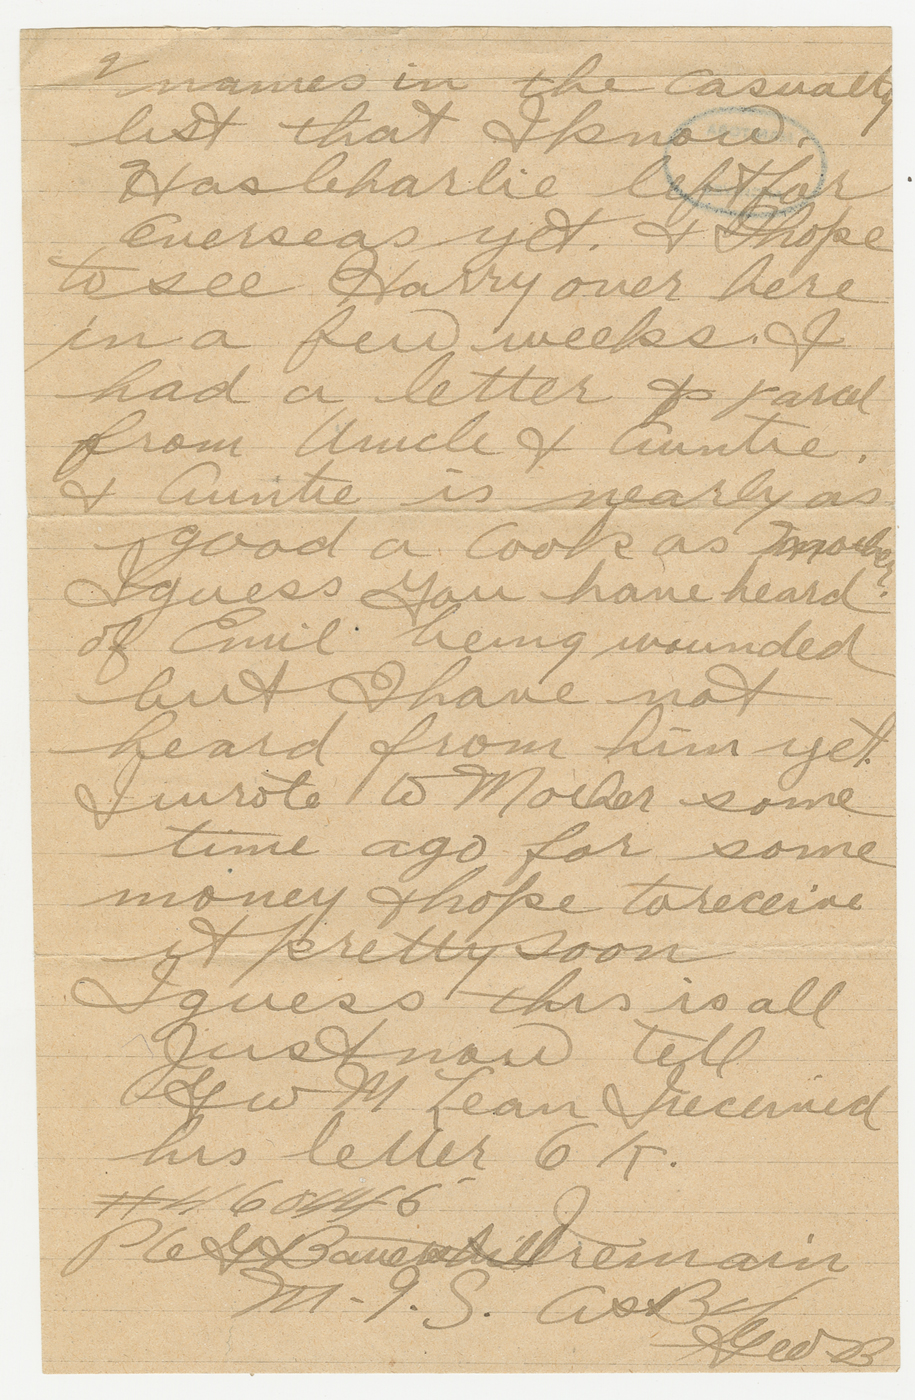 2
names in the casualty
list that I know.
Has Charlie left for
Overseas yet. & I hope
to see Harry over here
in a few weeks. I
had a letter & parcel
from Uncle & Auntie.
& Auntie is nearly as
good a Cook as mother.
I guess you have heard
of Emil being wounded
but I have not
heard from him yet.
I wrote to Mother some
time ago for some
money & hope to receive
it pretty soon
I guess this is all
Just now tell
Geo McLean I received
his letter O K.
I remain
Pte G
M.G.S. As B/
Geo B